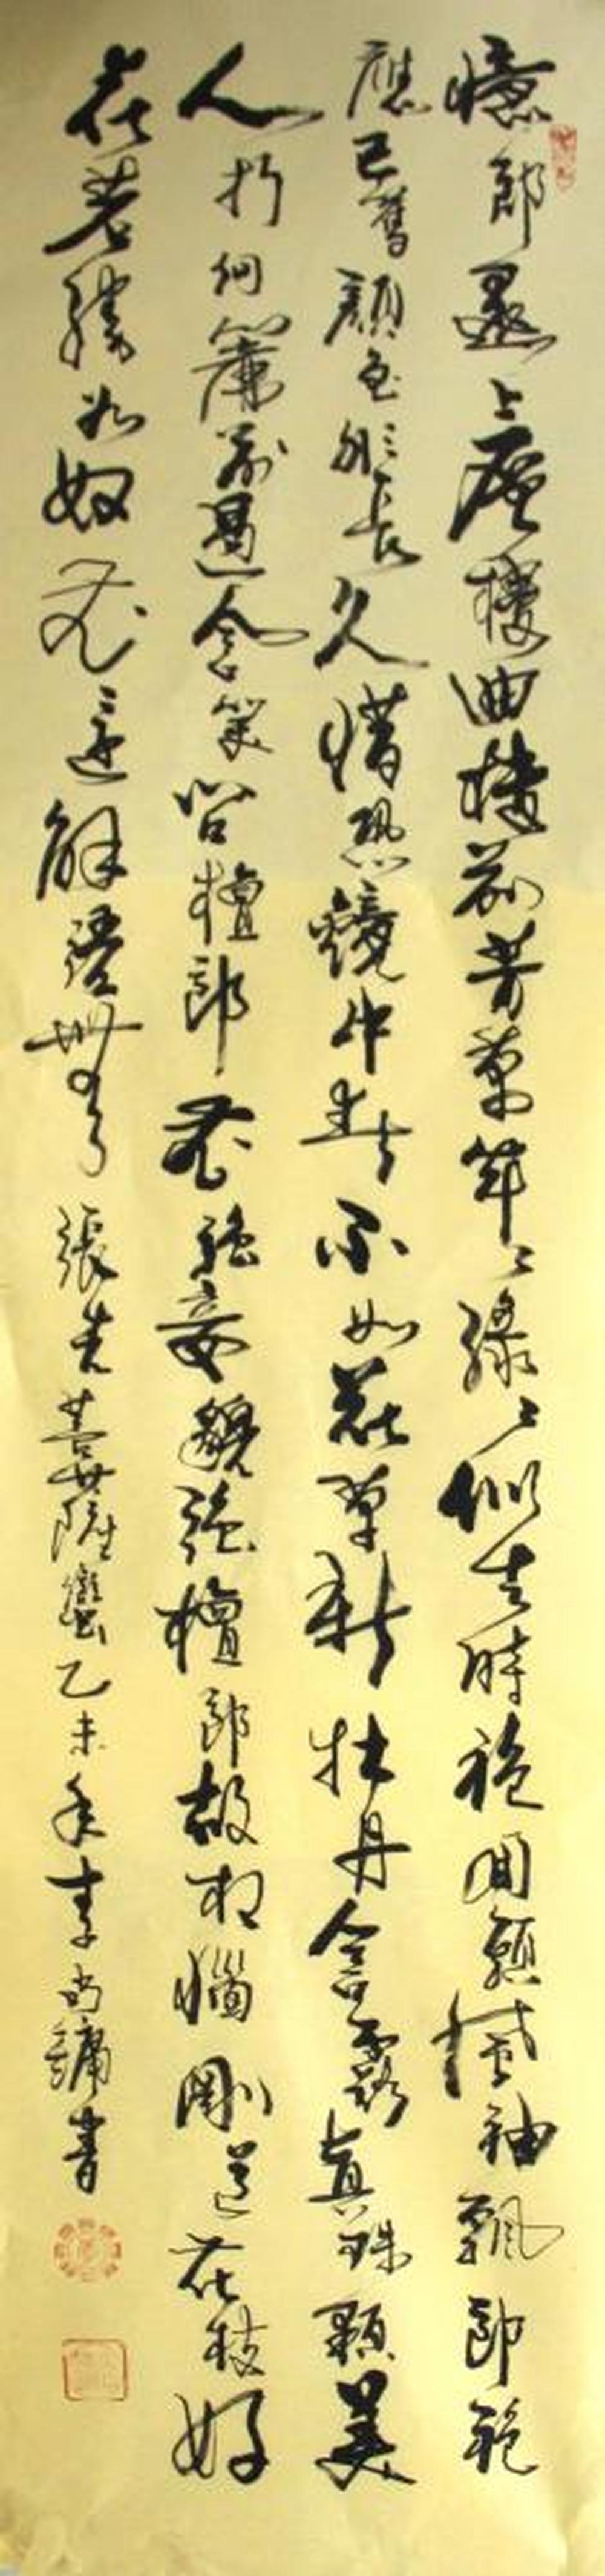 憶郎還上層樓曲樓前芳草年〻綠〻似去時袍回頭風袖飄郎袍
應已舊顏色非長久惜恐鏡中春不如花草新牡丹含露真珠顆美
人折向簾前過含笑問檀郎花強妾貌強檀郎故相惱剛道花枝好
花若勝如奴花還解語無 張先菩薩蠻乙未年李尚鏞書